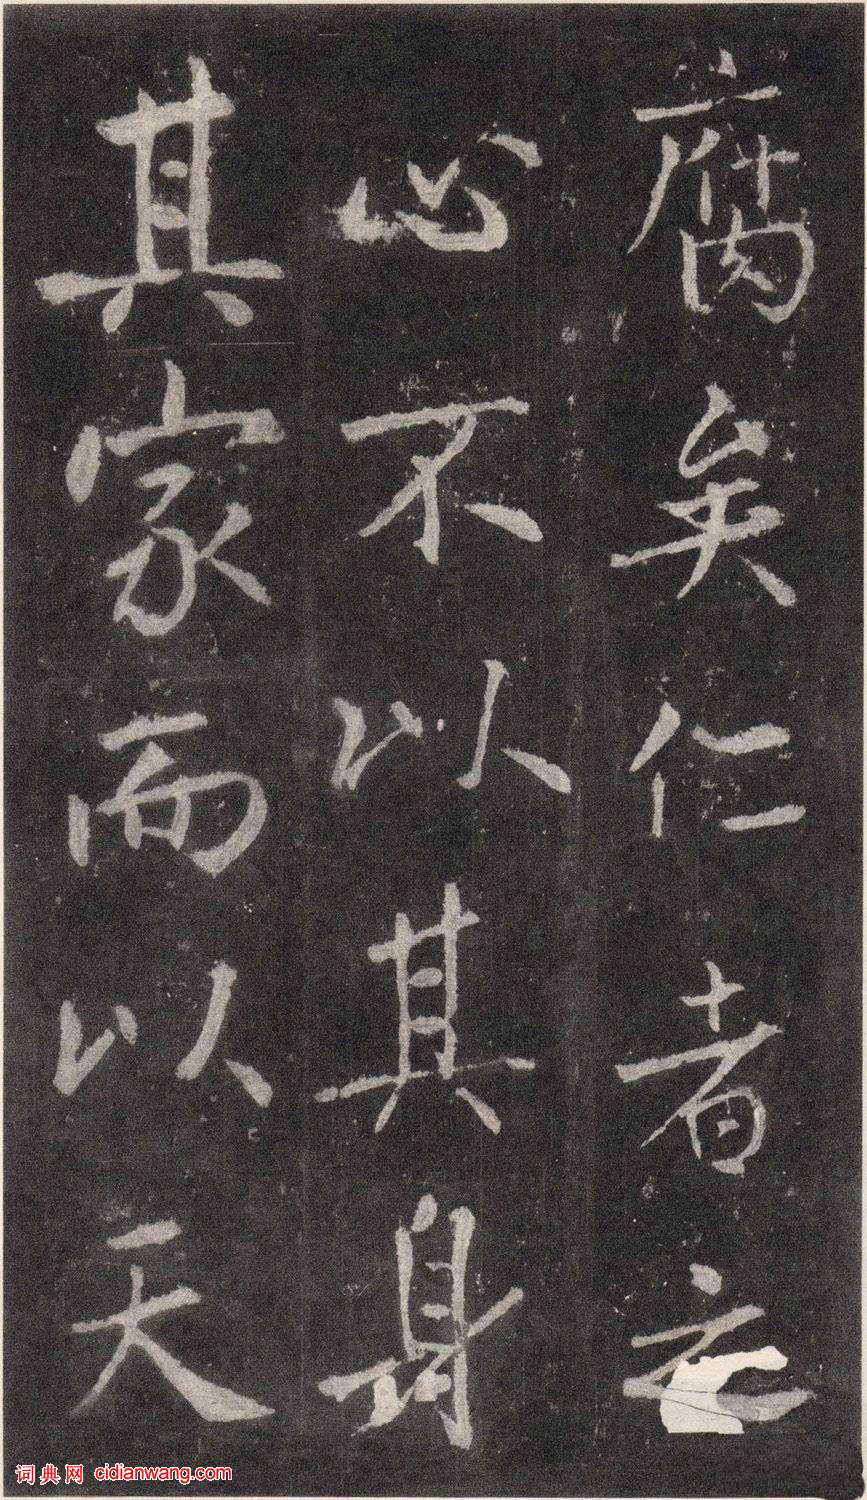 腐矣仁者之
心不以其身
其家而以天
词典网 cidianwang.com